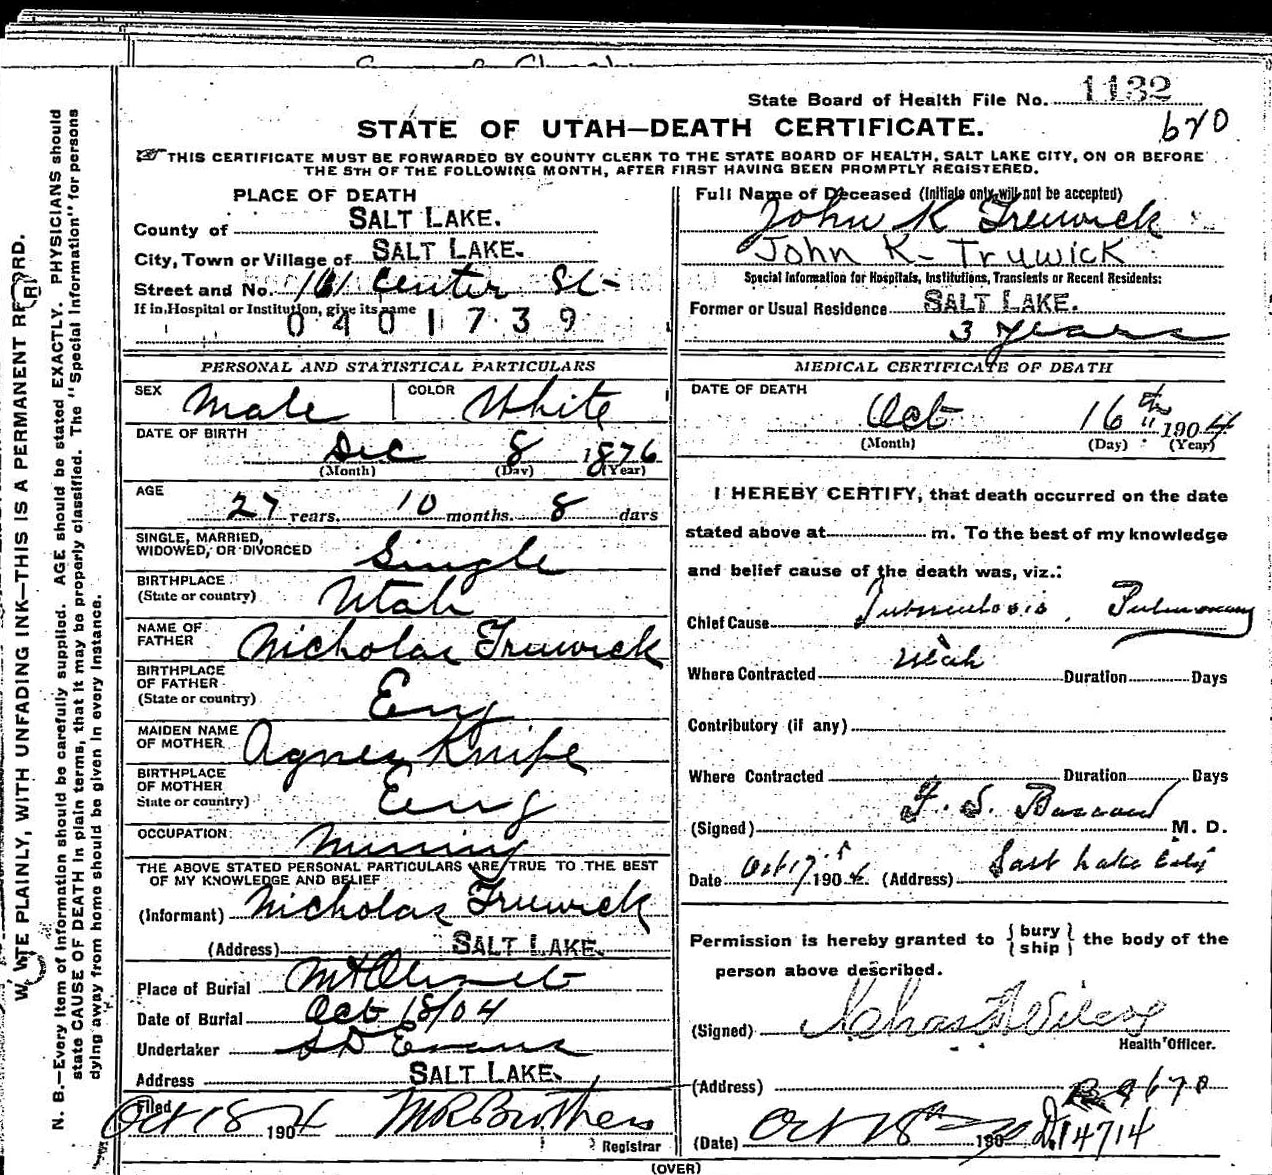 State Board of Health File No. 1132
STATE OF UTAH—DEATH CERTIFICATE.
670
THIS CERTIFICATE MUST BE FORWARDED BY COUNTY CLERK TO THE STATE BOARD OF HEALTH, SALT LAKE CITY, ON OR BEFORE
THE 5TH OF THE FOLLOWING MONTH, AFTER FIRST HAVING BEEN PROMPTLY REGISTERED.
PLACE OF DEATH
County of SALT LAKE.
City, Town or Village of SALT LAKE.
Street and No. 161 Center St-
If in Hospital or Institution, give its name
0401739
Full Name of Deceased (Initials only will not be accepted)
John K Truwick
John K- Truwick
Special Information for Hospitals, Institutions, Transients or Recent Residents:
Former or Usual Residence SALT LAKE.
3 years
PERSONAL AND STATISTICAL PARTICULARS
SEX Male COLOR White
DATE OF BIRTH
Dec 8 1876
(Month) (Day) (Year)
AGE
27 years, 10 months. 8 days
SINGLE, MARRIED,
WIDOWED, OR DIVORCED Single
BIRTHPLACE
(State or country) Utah
NAME OF
FATHER Nicholas Truwick
BIRTHPLACE
OF FATHER
(State or country) Eng
MAIDEN NAME
OF MOTHER Agnes Knipe
BIRTHPLACE
OF MOTHER
State or country) Eng
OCCUPATION Mining
THE ABOVE STATED PERSONAL PARTICULARS ARE TRUE TO THE BEST
OF MY KNOWLEDGE AND BELIEF
(Informant) Nicholas Truwick
(Address) SALT LAKE.
Place of Burial Mt Olivet
Date of Burial Oct 18/04
Undertaker S D Evans
Address SALT LAKE.
Filed Oct 18 1904 M R Brothers
Registrar
MEDICAL CERTIFICATE OF DEATH
DATE OF DEATH
Oct 16th 1904
(Month) (Day) (Year)
I HEREBY CERTIFY, that death occurred on the date
stated above at m. To the best of my knowledge
and belief cause of the death was, viz.:
Chief Cause Tuberculosis, Pulmonary
Where Contracted Utah Duration Days
Contributory (if any)
Where Contracted Duration Days
(Signed) F. S. M. D.
Date Oct 17 1904 (Address) Salt Lake City
Permission is hereby granted to { bury
ship } the body of the
person above described.
(Signed) Chas Wilcox
Health Officer.
(Address)
R 9670
(Date) Oct 18th 190
D14714
(OVER)
PLAINLY, WITH UNFADING INK—THIS IS A PERMANENT RECORD.
N. B.—Every item of information should be carefully supplied. AGE should be stated EXACTLY. PHYSICIANS should
state CAUSE OF DEATH in plain terms, that it may be properly classified. The "Special Information" for persons
dying away from home should be given in every instance.